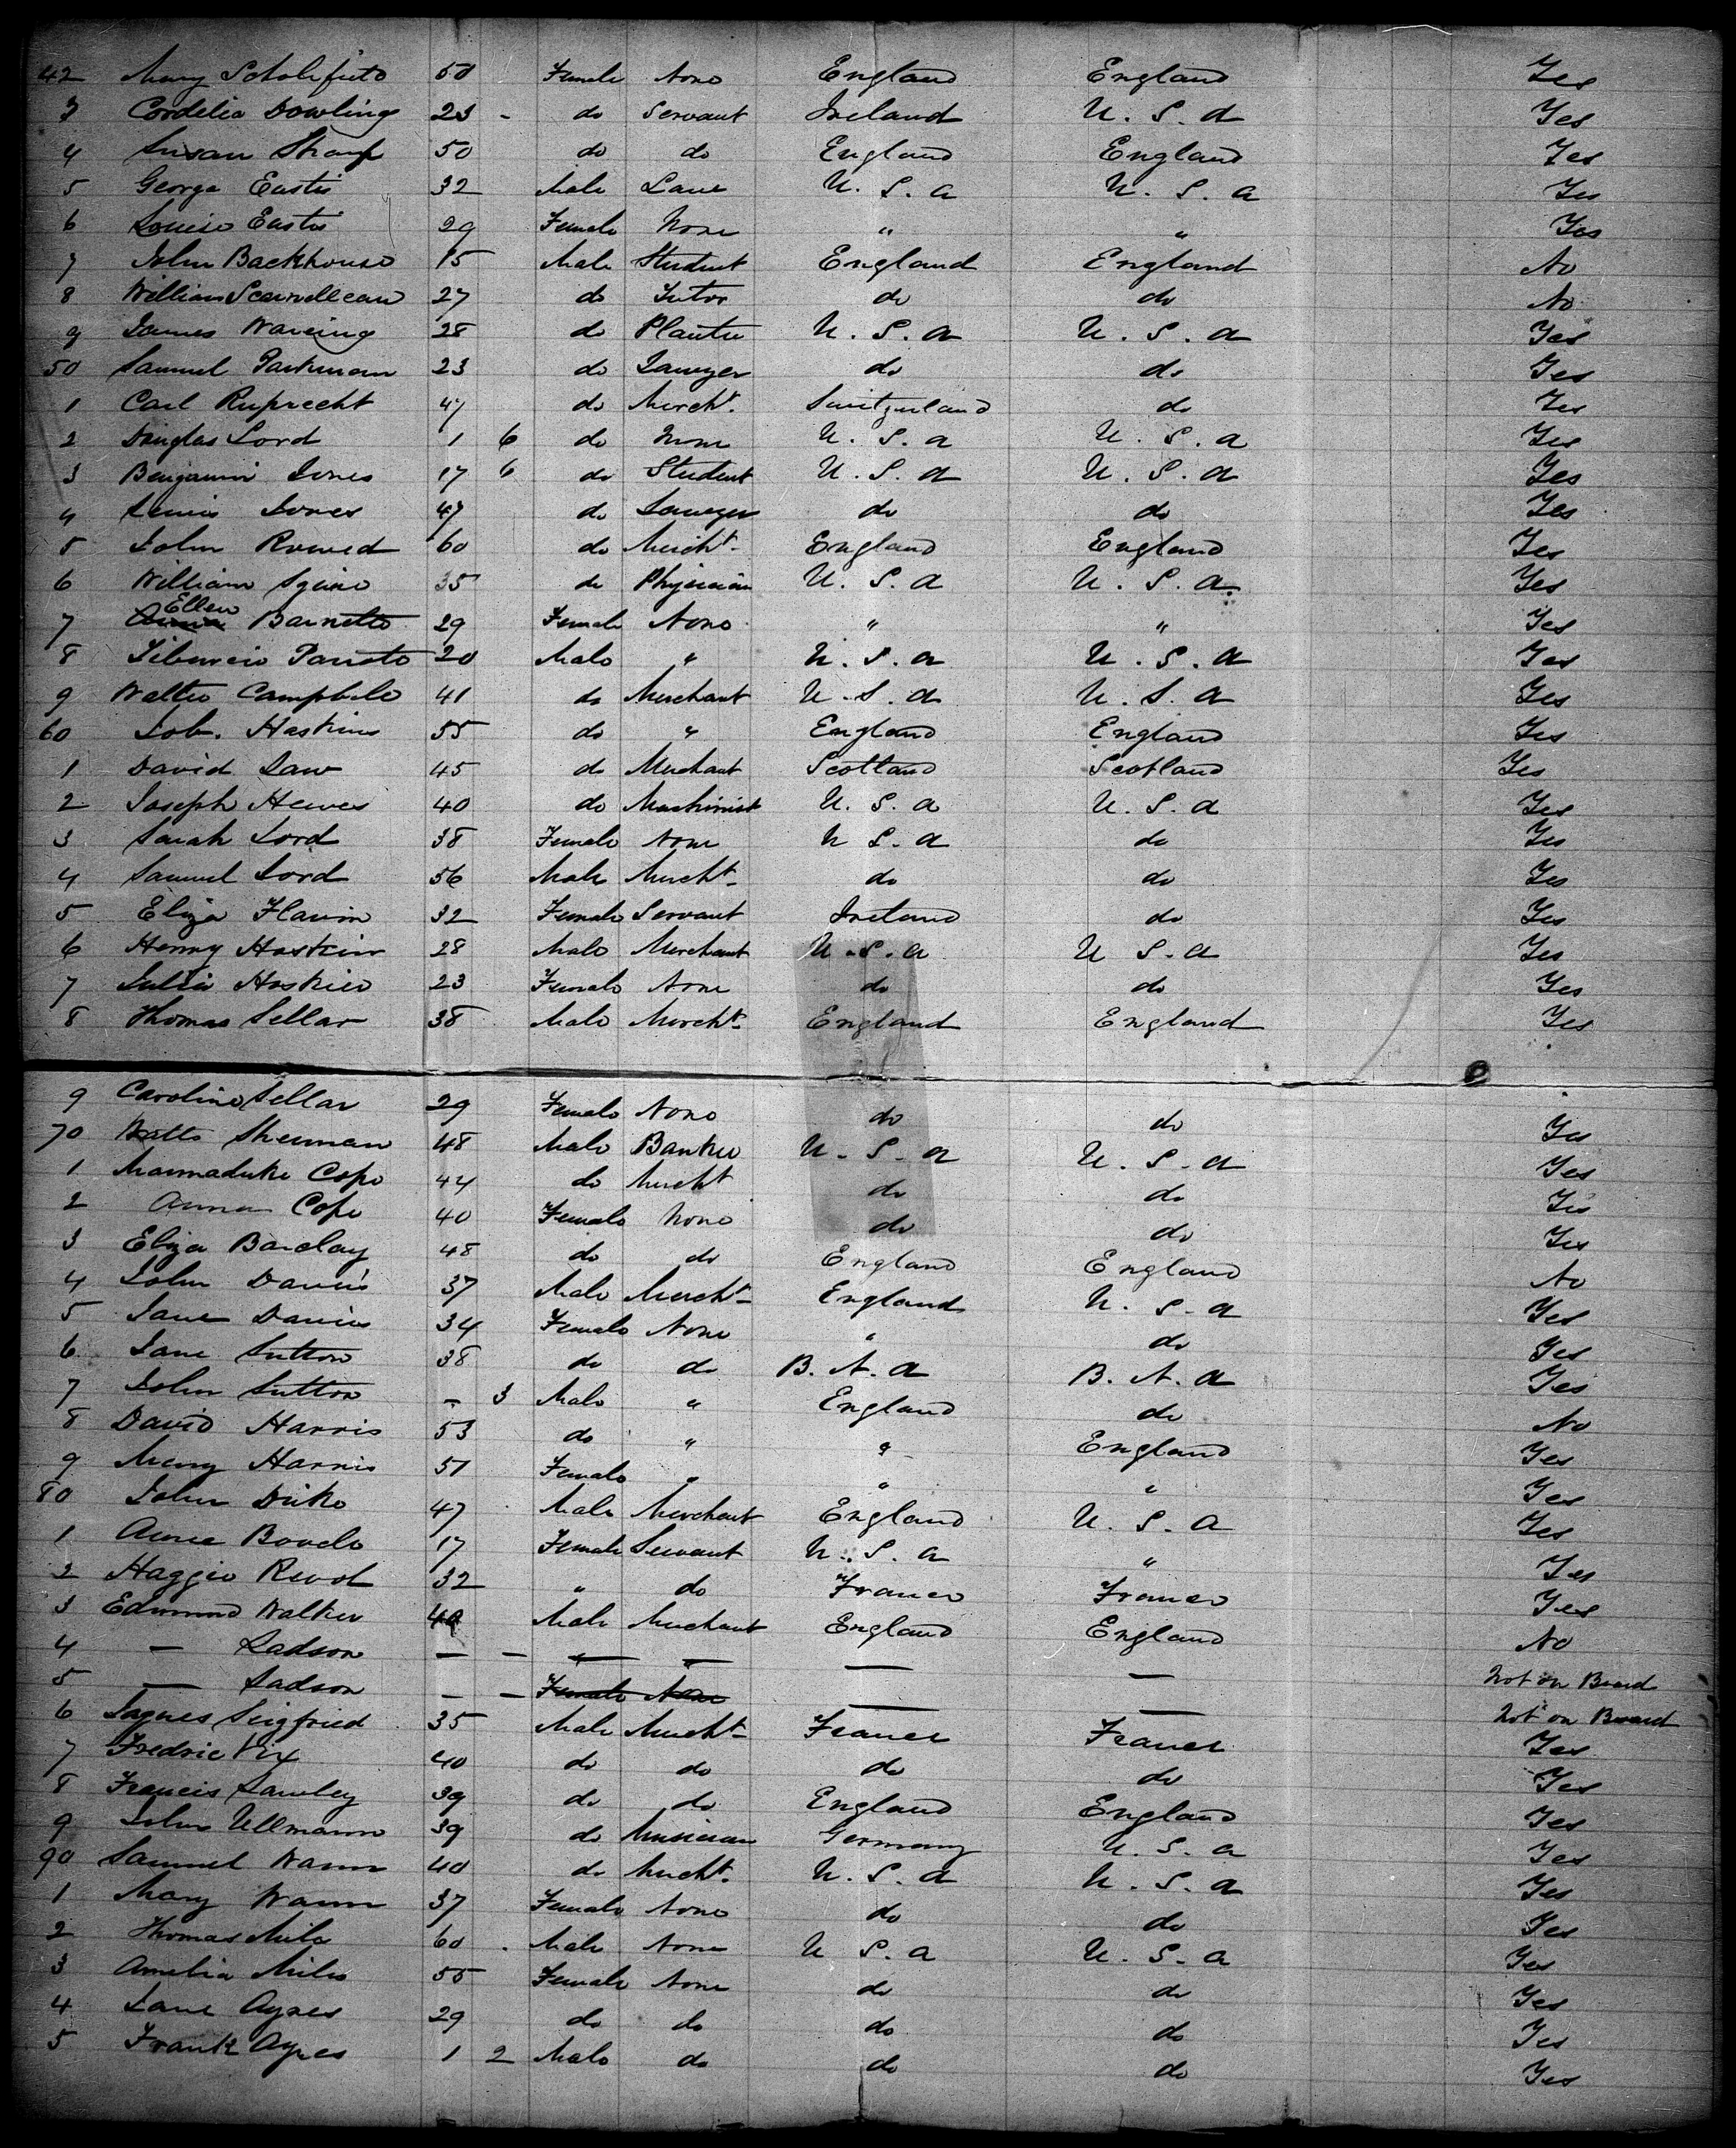 42 Mary Scholefield 50 Female None England England Yes
3 Cordelia Dowling 23 - do Servant Ireland U. S. A Yes
4 Susan Sharp 50 do do England England Yes
5 George Eustis 32 Male Law U. S. A U. S. A Yes
6 Louise Eustis 29 Female None " " Yes
7 John Backhouse 15 Male Student England England No
8 William 27 do Tutor do do No
9 James Waring 28 do Planter U. S. A U. S. A Yes
50 Samuel Parkman 23 do Lawyer do do Yes
1 Carl Ruprecht 47 do Mercht. Switzerland do Yes
2 Douglas Lord 1 6 do None U. S. A U. S. A Yes
3 Benjamin Jones 17 6 do Student U. S. A U. S. A Yes
4 Lewis Jones 47 do Lawyer do do Yes
5 John Rowed 60 do Mercht- England England Yes
6 William Squire 35 do Physician U. S. A U. S. A. Yes
7 Ellen Barnette 29 Female None " " Yes
8 Tiburcio 20 Male " U. S. A U. S. A Yes
9 Walter Campbell 41 do Merchant U. S. A U. S. A Yes
60 Job. Haskins 55 do " England England Yes
1 David Law 45 do Merchant Scotland Scotland Yes
2 Joseph Hewes 40 do Machinist U. S. A U. S. A Yes
3 Sarah Lord 38 Female None U S. A do Yes
4 Samuel Lord 56 Male Mercht- do do Yes
5 Eliza Flavin 32 Female Servant Ireland do Yes
6 Henry Haskin 28 Male Merchant U. S. A U S. A Yes
7 Julia 23 Female None do do Yes
8 Thomas Sellar 38 Male Mercht- England England Yes
9 Caroline Sellar 29 Female None do do Yes
70 Watts Sherman 48 Male Banker U. S. A U. S. A Yes
1 Marmaduke Cope 44 do Mercht do do Yes
2 Anna Cope 40 Female None do do Yes
3 Eliza Barclay 48 do do England England No
4 John Davis 37 Male Mercht- England U. S. A Yes
5 Jane Davis 34 Female None " do Yes
6 Jane Sutton 38 do do B. N. A B. N. A Yes
7 John Sutton - 3 Male " England do No
8 David Harris 53 do " " England Yes
9 Mary Harris 51 Female " " " Yes
80 John 47 Male Merchant England U. S. A Yes
1 Annie 17 Female Servant U. S. A " Yes
2 Haggie 32 " do France France Yes
3 Edmund Walker 40 Male Merchant England England No
4 — Ladson — — — — — — Not on Board
5 — Ladson — — Female None — — Not on Board
6 Jaques Seigfried 35 Male Mercht- France France Yes
7 Fredric Vix 40 do do do do Yes
8 Francis Lawley 39 do do England England Yes
9 John Ullmann 39 do Musician Germany U. S. A Yes
90 Samuel Wann 40 do Mercht. U. S. A U. S. A Yes
1 Mary Wann 37 Female None do do Yes
2 Thomas Mile 60 Male None U S. A U. S. A Yes
3 Amelia Miles 55 Female None do do Yes
4 Jane Ayres 29 do do do do Yes
5 Frank Ayres 1 2 Male do do do Yes